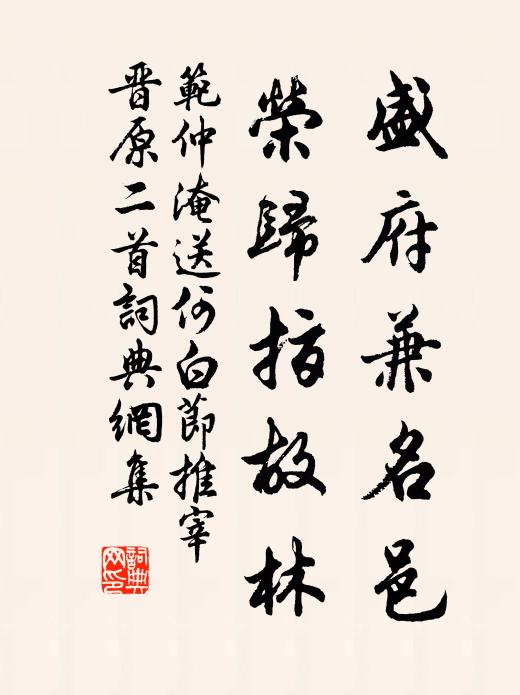 盛府兼名邑
榮歸指故林
範仲淹送何白節推宰
晋原二首詞典網集
詞典网印